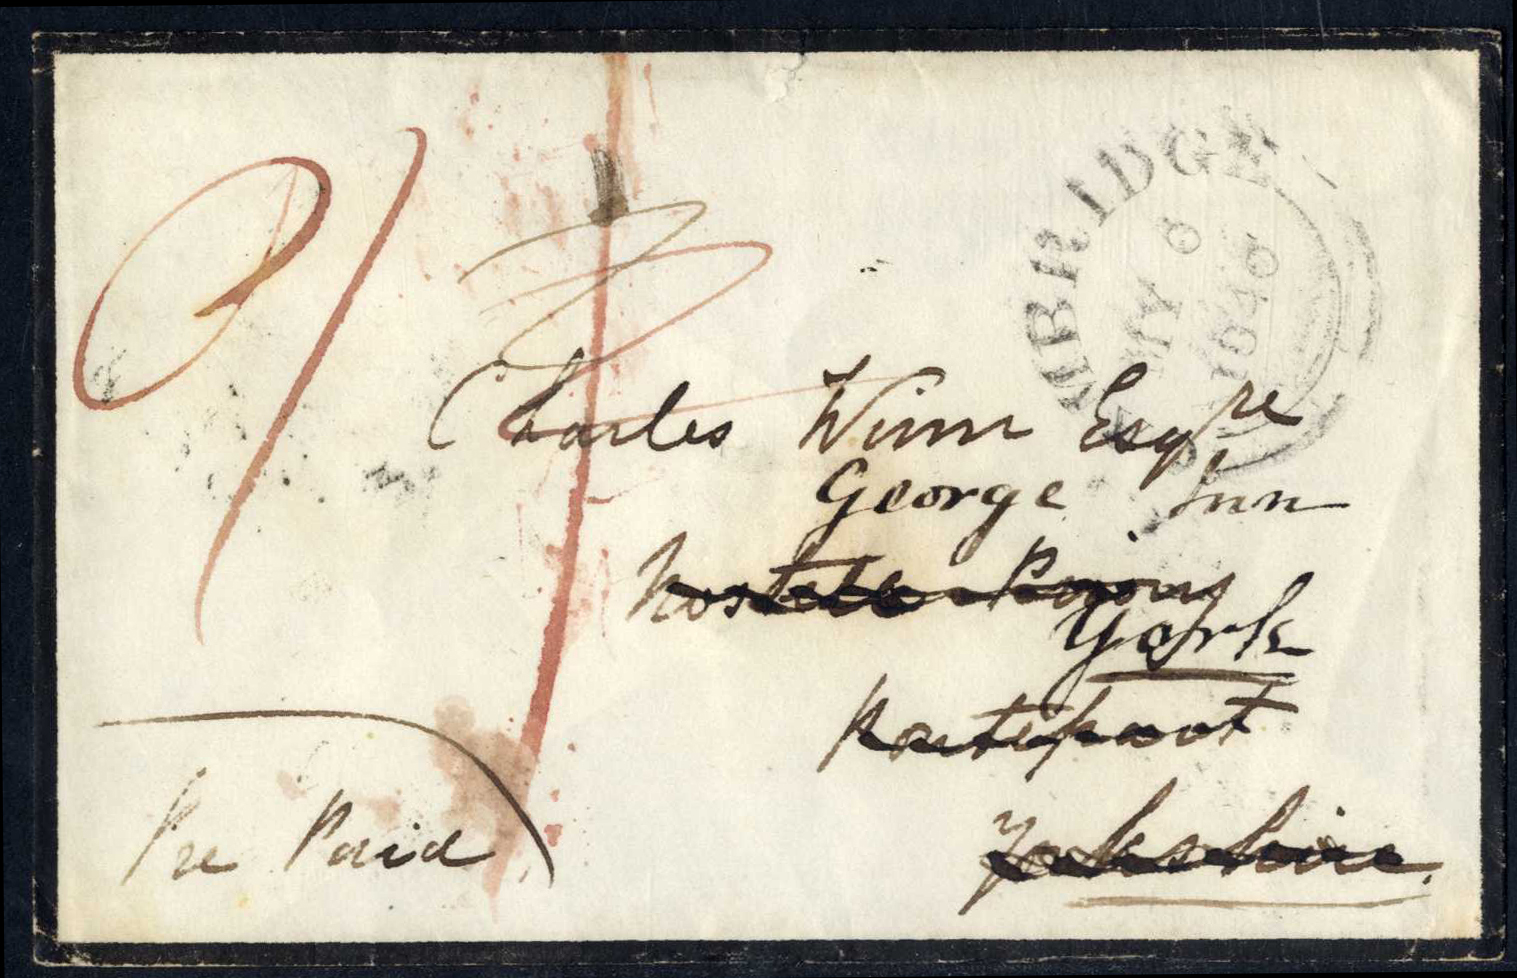 MBRIDGE
MY 6
1840
Charles Winn Esqre
George Inn
Nostell Priory
York
Pontefract
Yorkshire.
Pre Paid